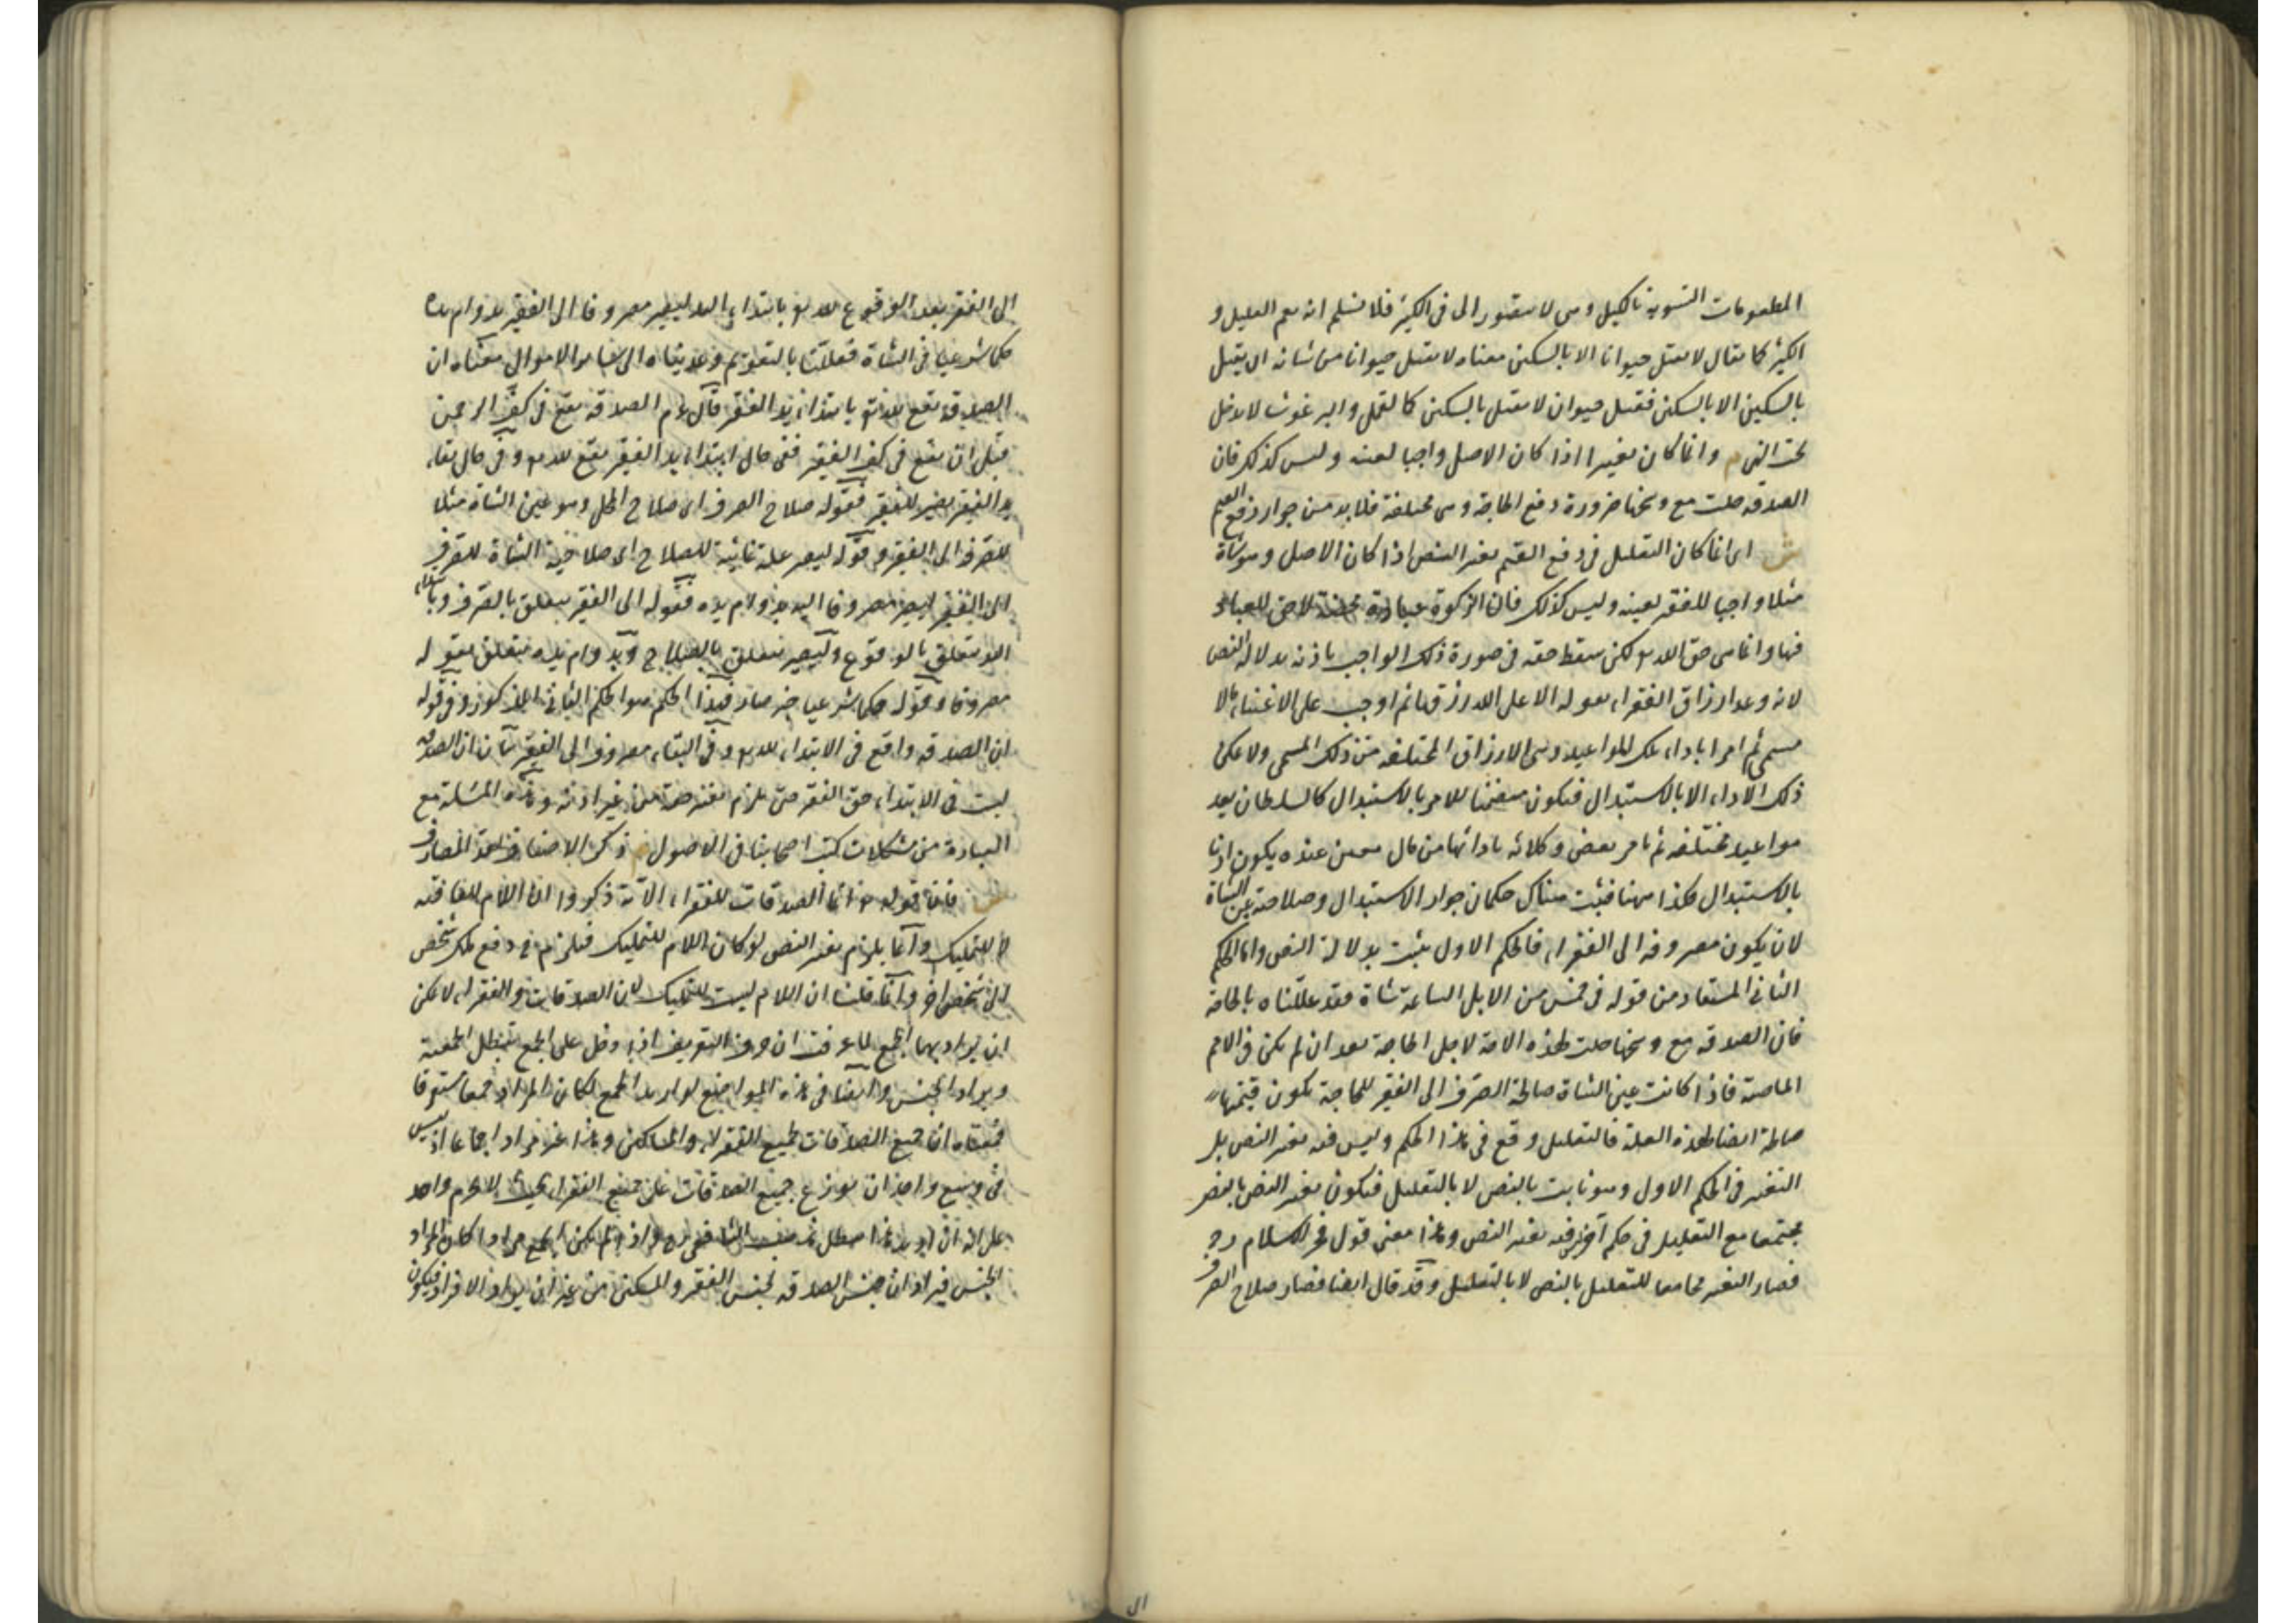 المطعومات التسوية بالكيل وهي لا يتصور الى في الكثير فلا نسلم انه يعم القليل و
الكثير كما يقال لا تقتل حيوانا الا بالسكين معناه لا تقتل حيوانا من شانه ان يقتل
بالسكين الا بالسكين فقتل حيوان لا يقتل بالسكين كالقمل والبرغوث لا يدخل
تحت النهي م وانما كان تغييرا اذا كان الاصل واجبا لعينه وليس كذلك فان
الصدقة حلت مع وسخها ضرورة دفع الحاجة وهي مختلفة فلا بد من جواز دفع القيم
ش اي انما كان التعليل في دفع القيم تغير النص اذا كان الاصل وهو شاة
مثلا واجبا للفقير بعينه وليس كذلك فان الزكوة عبادة محضة لا حق للعباد
فيها وانما هي حق الله تع لكن سقط حقه في صورة ذلك الواجب باذنه بدلالة النص
لانه وعد ارزاق الفقراء بقوله الا على الله رزقها ثم اوجب على الاغنياء مالا
مسمى ثم امر باداء تلك المواعيد وهي الارزاق المختلفة من ذلك المسمى ولا يمكن
ذلك الاداء الا بالاستبدال فيكون متضمنا للامر بالاستبدال كالسلطان يعد
مواعيد مختلفة ثم يامر بعض وكلائه بادائها من مال معين عنده يكون اذنا
بالاستبدال فكذا ههنا فثبت هناك حكمان جواز الاستبدال وصلاحية عين الشاة
لان يكون مصروفة الى الفقراء فالحكم الاول يثبت بدلالة النص واما الحكم
الثاني المستفاد من قوله في خمس من الابل السائمة شاة فقد عللناه بالحاجة
فان الصدقة مع وسخها حلت لهذه الامة لاجل الحاجة بعد ان لم تكن في الامم
الماضية فاذا كانت عين الشاة صالحة الصرف الى الفقير للحاجة تكون قيمتها
صالحة ايضا لهذه العلة فالتعليل وقع في هذا الحكم وليس فيه تغير النص بل
التغير في الحكم الاول وهو ثابت بالنص لا بالتعليل فيكون تغير النص بالنص
مجتمعا مع التعليل في حكم آخر ليس فيه تغير النص وهذا معنى قول فخر الاسلام رح
فصار التغير مجامعا للتعليل بالنص لا بالتعليل وقد قال ايضا فصار صلاح الصرف
الى الفقير بعد الوقوع لله تع بابتداء اليد ليصير مصروفا الى الفقير بدوام يده
حكما شرعيا في الشاة فعللنا بالتقويم وعديناه الى سائر الاموال معناه ان
الصدقة تقع لله تع بابتداء يد الفقير قال عم الصدقة تقع في كف الرحمن
قبل ان تقع في كف الفقير ففي حال ابتداء يد الفقير تقع لله تع وفي حال بقاء
يد الفقير تصير للفقير فقوله صلاح الصرف اي صلاح المحل وهو عين الشاة مثلا
للصرف الى الفقير وقوله ليصير علة غائية للصلاح اي صلاحية الشاة للصرف
الى الفقير ليصير مصروفا اليه بدوام يده فقوله الى الفقير يتعلق بالصرف وبابتداء
اليد يتعلق بالوقوع وليصير يتعلق بالصلاح وبدوام يده متعلق بقوله
مصروفا وقوله حكما شرعيا خبر صار فهذا الحكم هو الحكم الثاني المذكور وفي قوله
ان الصدقة واقع في الابتداء لله تع وفي البقاء مصروف الى الفقير بيان ان الصدقة
ليست في الابتداء حق الفقير حتى يلزم تغير حقه من غير اذنه وهذه المسئلة مع
العبارة من مشكلات كتب اصحابنا في الاصول م وذكر الاصناف لعد المصارف
ش فان قوله تع انما الصدقات للفقراء الآية ذكروا ان اللام للعاقبة
لا للتمليك وانما يلزم تغير النص لو كان اللام للتمليك فيلزم ح دفع ملك شخص
الى شخص آخر وانما قلنا ان اللام ليست للتمليك لان الصدقات والفقراء لا يمكن
ان يراد بهما الجمع لما عرفت ان حرف التعريف اذا دخل على الجمع تبطل الجمعية
ويراد الجنس وايضا في هذه المواضع لو اريد الجمع لكان المراد جميعا مستغرقا
فمعناه ان جميع الصدقات لجميع الفقراء والمساكين وهذا غير مراد اجماعا اذ ليس
في وسع واحد ان يوزع جميع الصدقات على جميع الفقراء بحيث لا يحرم واحد
على انه ان اريد هذا يبطل مذهب الشافعي رح واذا لم يكن الجمع مرادا كان المراد
الجنس فيراد ان جنس الصدقة لجنس الفقير والمسكين من غير ان يراد الافراد فيكون